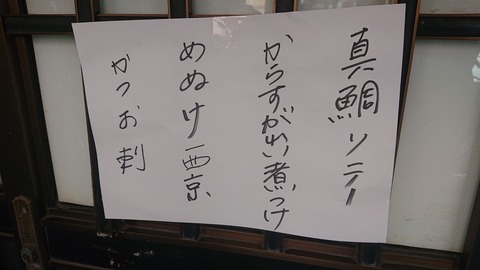 真鯛ソテー
からすがれい煮つけ
めぬけ西京
かつお刺